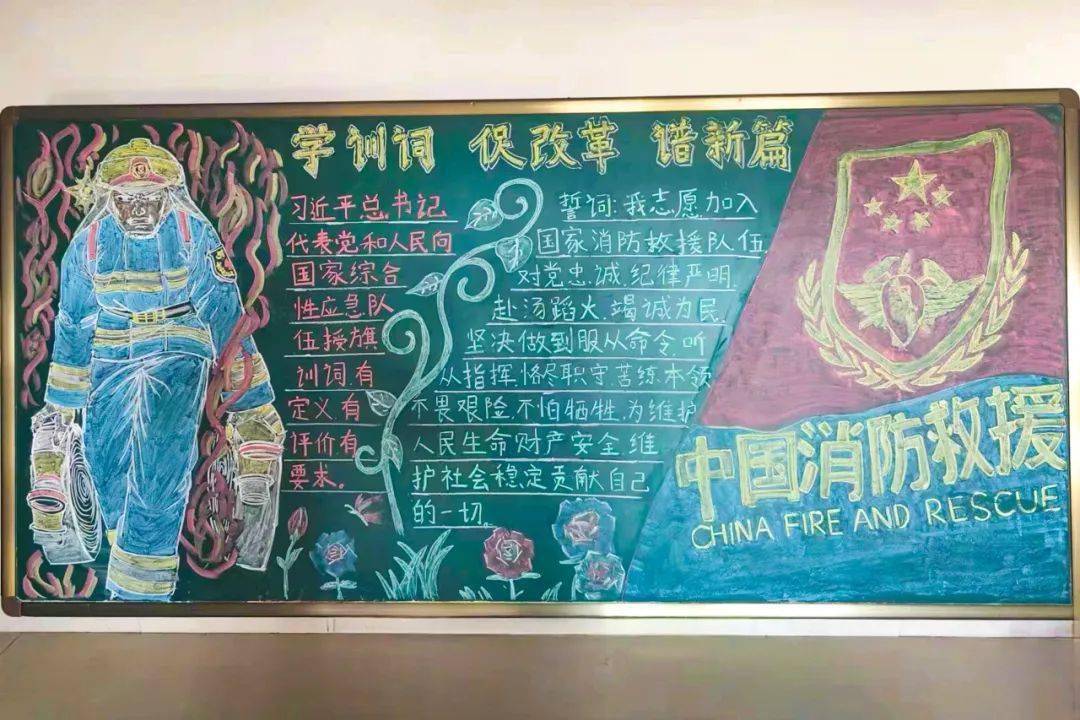 学训词 促改革 谱新篇
习近平总书记
代表党和人民向
国家综合
性应急队
伍授旗
训词,有
定义,有
评价有
要求。
誓词:我志愿加入
国家消防救援队伍
对党忠诚,纪律严明
赴汤蹈火,竭诚为民,
坚决做到服从命令,听
从指挥,恪尽职守,苦练本领
不畏艰险,不怕牺牲,为维护
人民生命财产安全维
护社会稳定贡献自己
的一切。
中国消防救援
CHINA FIRE AND RESCUE